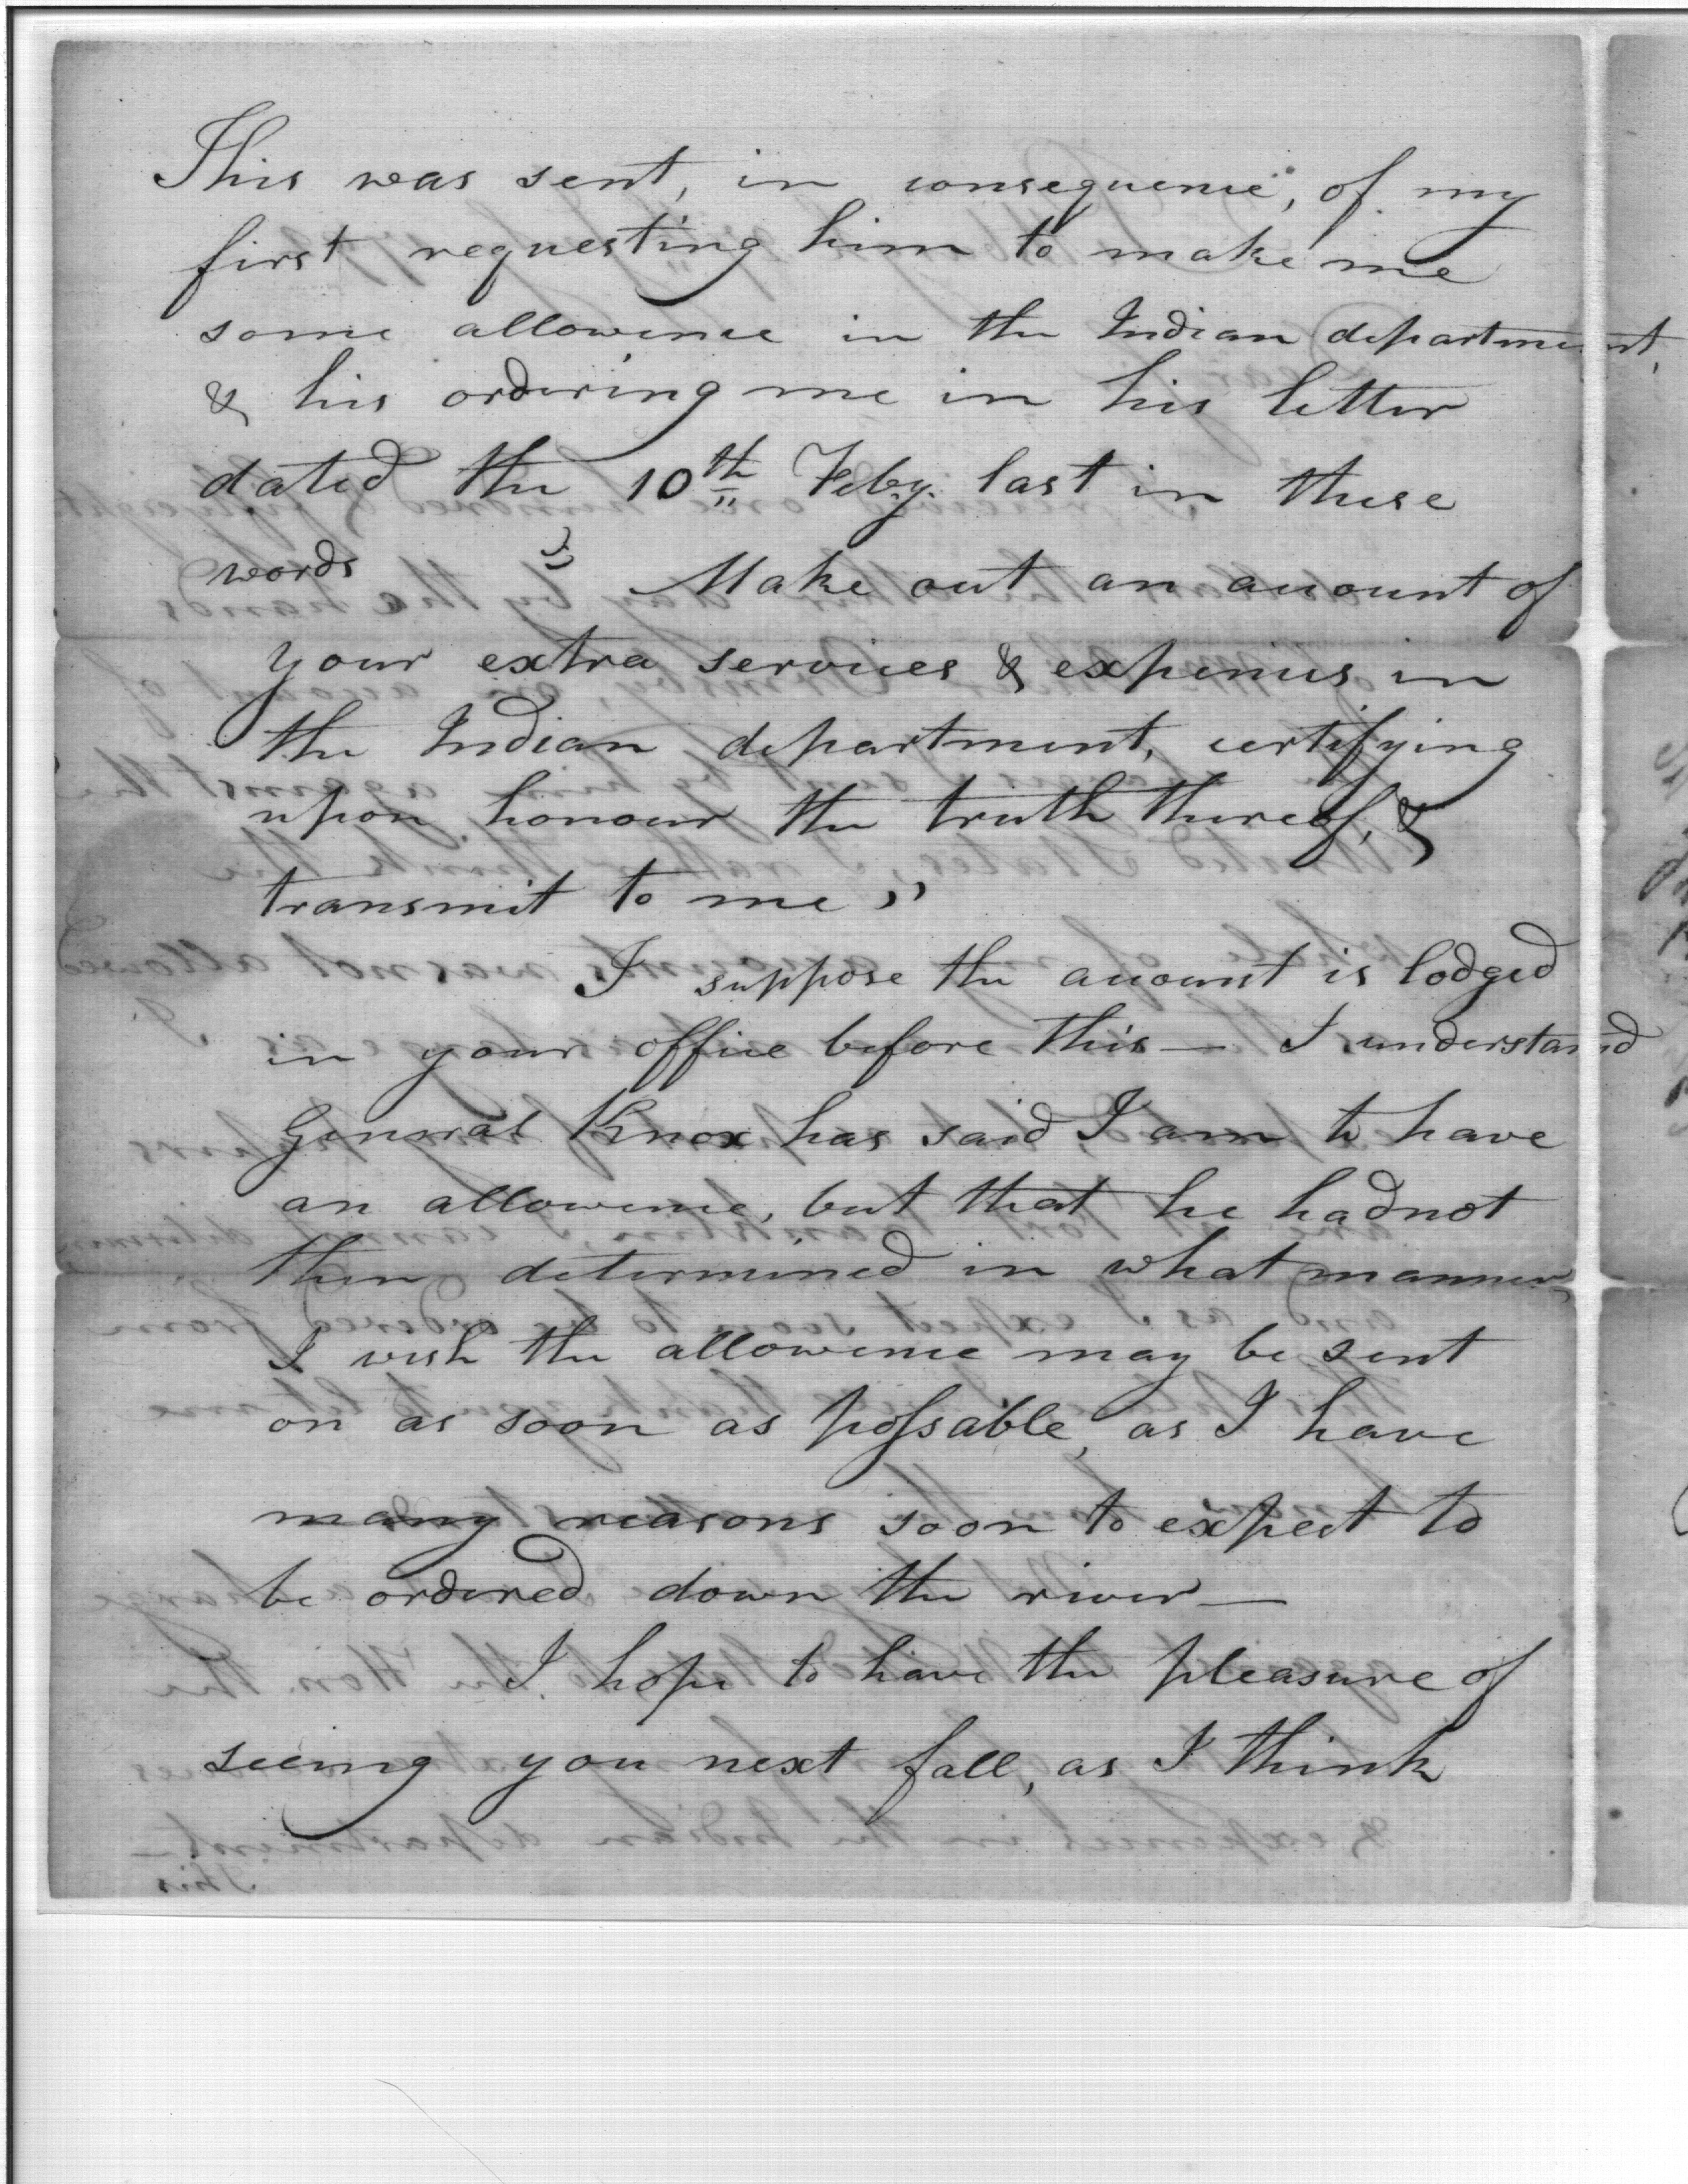 This was sent, in consequence, of my
first requesting him to make me
some allowence in the Indian department,
& his ordering me in his letter
dated the 10th Feby. last in these
words " Make out an account of
your extra services & expences in
the Indian department, certifying
upon honour the truth thereof, &
transmit to me "
I suppose the account is lodged
in your office before this — I understand
General Knox has said I am to have
an allowence, but that he had not
then determined in what manner,
I wish the allowence may be sent
on as soon as possable, as I have
many reasons soon to expect to
be ordered down the river —
I hope to have the pleasure of
seeing you next fall, as I think